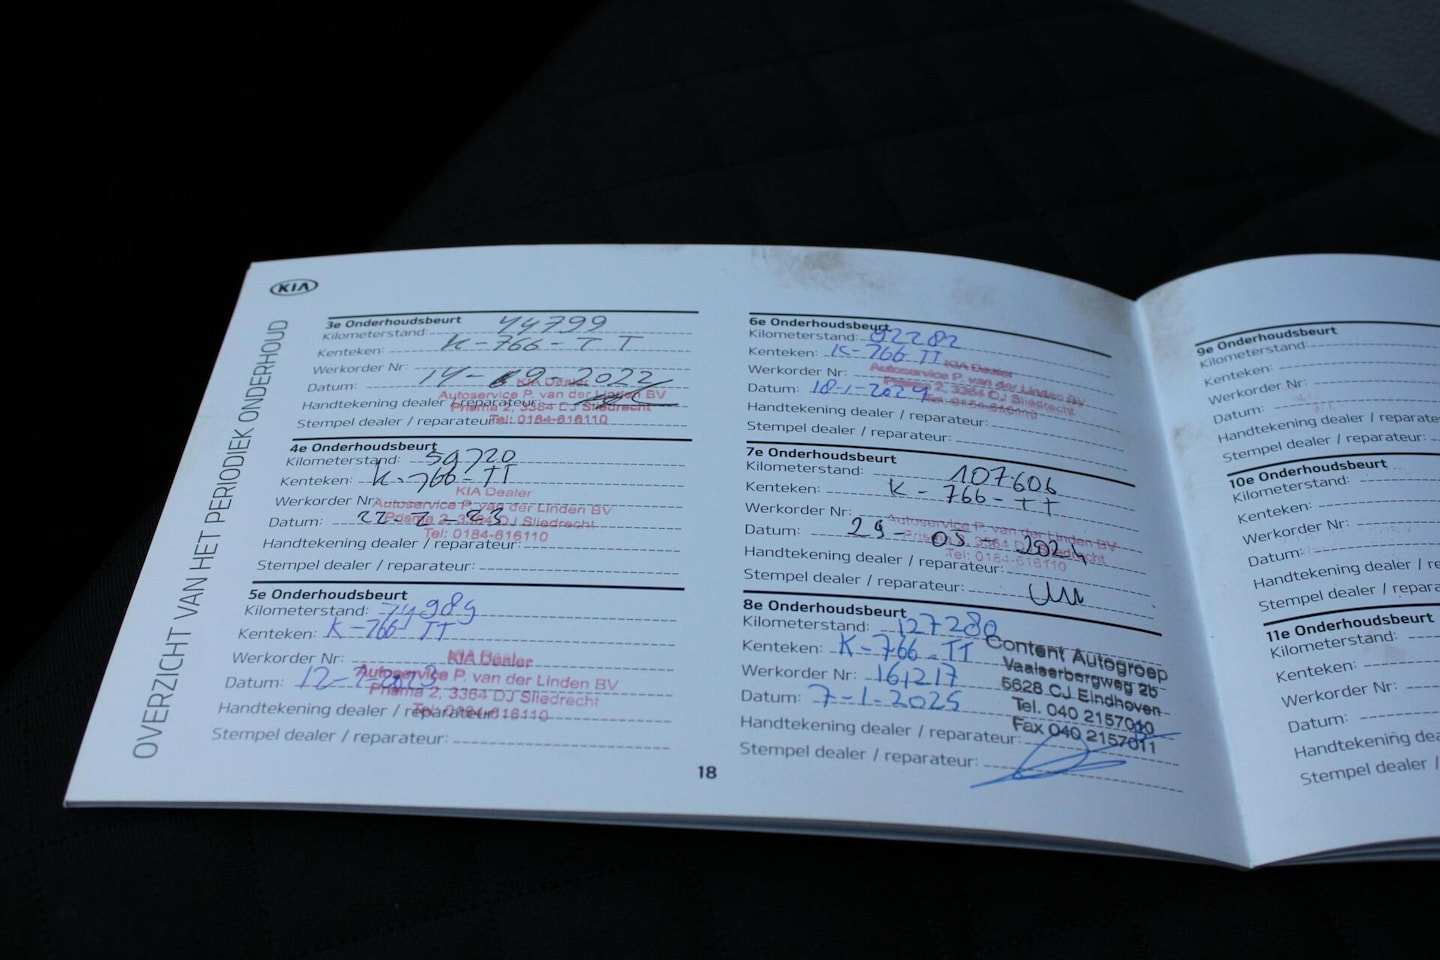 KIA
OVERZICHT VAN HET PERIODIEK ONDERHOUD
3e Onderhoudsbeurt
Kilometerstand: 44799
Kenteken: K-766-TT
Werkorder Nr:
Datum: 14-09-2022
KIA Dealer
Autoservice P. van der Linden BV
Prisma 2, 3364 DJ Sliedrecht
Tel: 0184-616110
Handtekening dealer / reparateur:
Stempel dealer / reparateur:
4e Onderhoudsbeurt
Kilometerstand: 59720
Kenteken: K-766-TT
Werkorder Nr:
KIA Dealer
Autoservice P. van der Linden BV
Prisma 2, 3364 DJ Sliedrecht
Tel: 0184-616110
Datum: 22-2-23
Handtekening dealer / reparateur:
Stempel dealer / reparateur:
5e Onderhoudsbeurt
Kilometerstand: 74989
Kenteken: K-766 TT
Werkorder Nr:
KIA Dealer
Autoservice P. van der Linden BV
Prisma 2, 3364 DJ Sliedrecht
Tel: 0184-616110
Datum: 12-7-2023
Handtekening dealer / reparateur:
Stempel dealer / reparateur:
6e Onderhoudsbeurt
Kilometerstand: 92282
Kenteken: K-766 TT
Werkorder Nr:
KIA Dealer
Autoservice P. van der Linden BV
Prisma 2, 3364 DJ Sliedrecht
Tel: 0184-616110
Datum: 18-1-2024
Handtekening dealer / reparateur:
Stempel dealer / reparateur:
7e Onderhoudsbeurt
Kilometerstand: 107606
Kenteken: K-766-TT
Werkorder Nr:
Autoservice P. van der Linden BV
Prisma 2, 3364 DJ Sliedrecht
Tel: 0184-616110
Datum: 29-05-2024
Handtekening dealer / reparateur:
Stempel dealer / reparateur:
8e Onderhoudsbeurt
Kilometerstand: 127280
Kenteken: K-766-TT
Werkorder Nr: 161217
Datum: 7-1-2025
Content Autogroep
Vaalserbergweg 2b
5628 CJ Eindhoven
Tel. 040 2157010
Fax 040 2157011
Handtekening dealer / reparateur:
Stempel dealer / reparateur:
18
9e Onderhoudsbeurt
Kilometerstand:
Kenteken:
Werkorder Nr:
Datum:
Handtekening dealer / reparate
Stempel dealer / reparateur:
10e Onderhoudsbeurt
Kilometerstand:
Kenteken:
Werkorder Nr:
Datum:
Handtekening dealer / re
Stempel dealer / repara
11e Onderhoudsbeurt
Kilometerstand:
Kenteken:
Werkorder Nr:
Datum:
Handtekening dea
Stempel dealer /